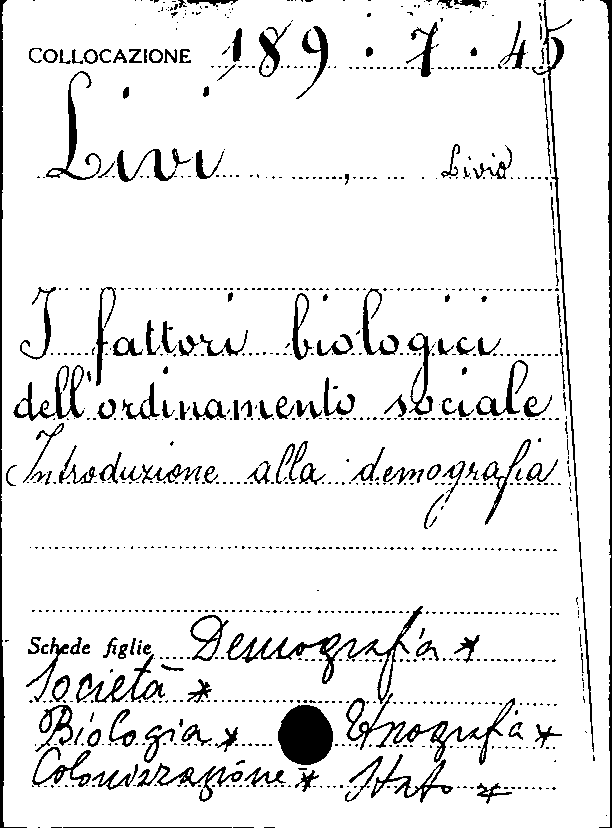 COLLOCAZIONE 189 . 7 . 45
Livi , Livio
I fattori biologici
dell'ordinamento sociale
Introduzione alla demografia
Schede figlie Demografia *
Società *
Biologia * Etnografia *
Colonizzazione * Stato *